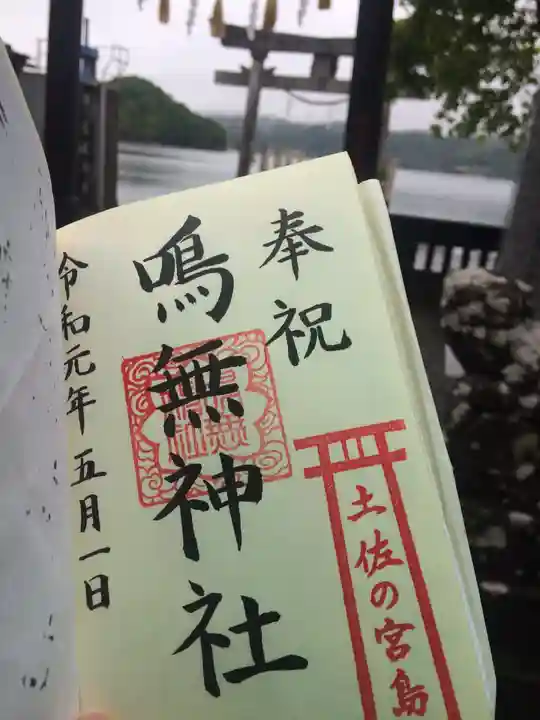 奉祝
鳴無神社
令和元年五月一日
土佐の宮島